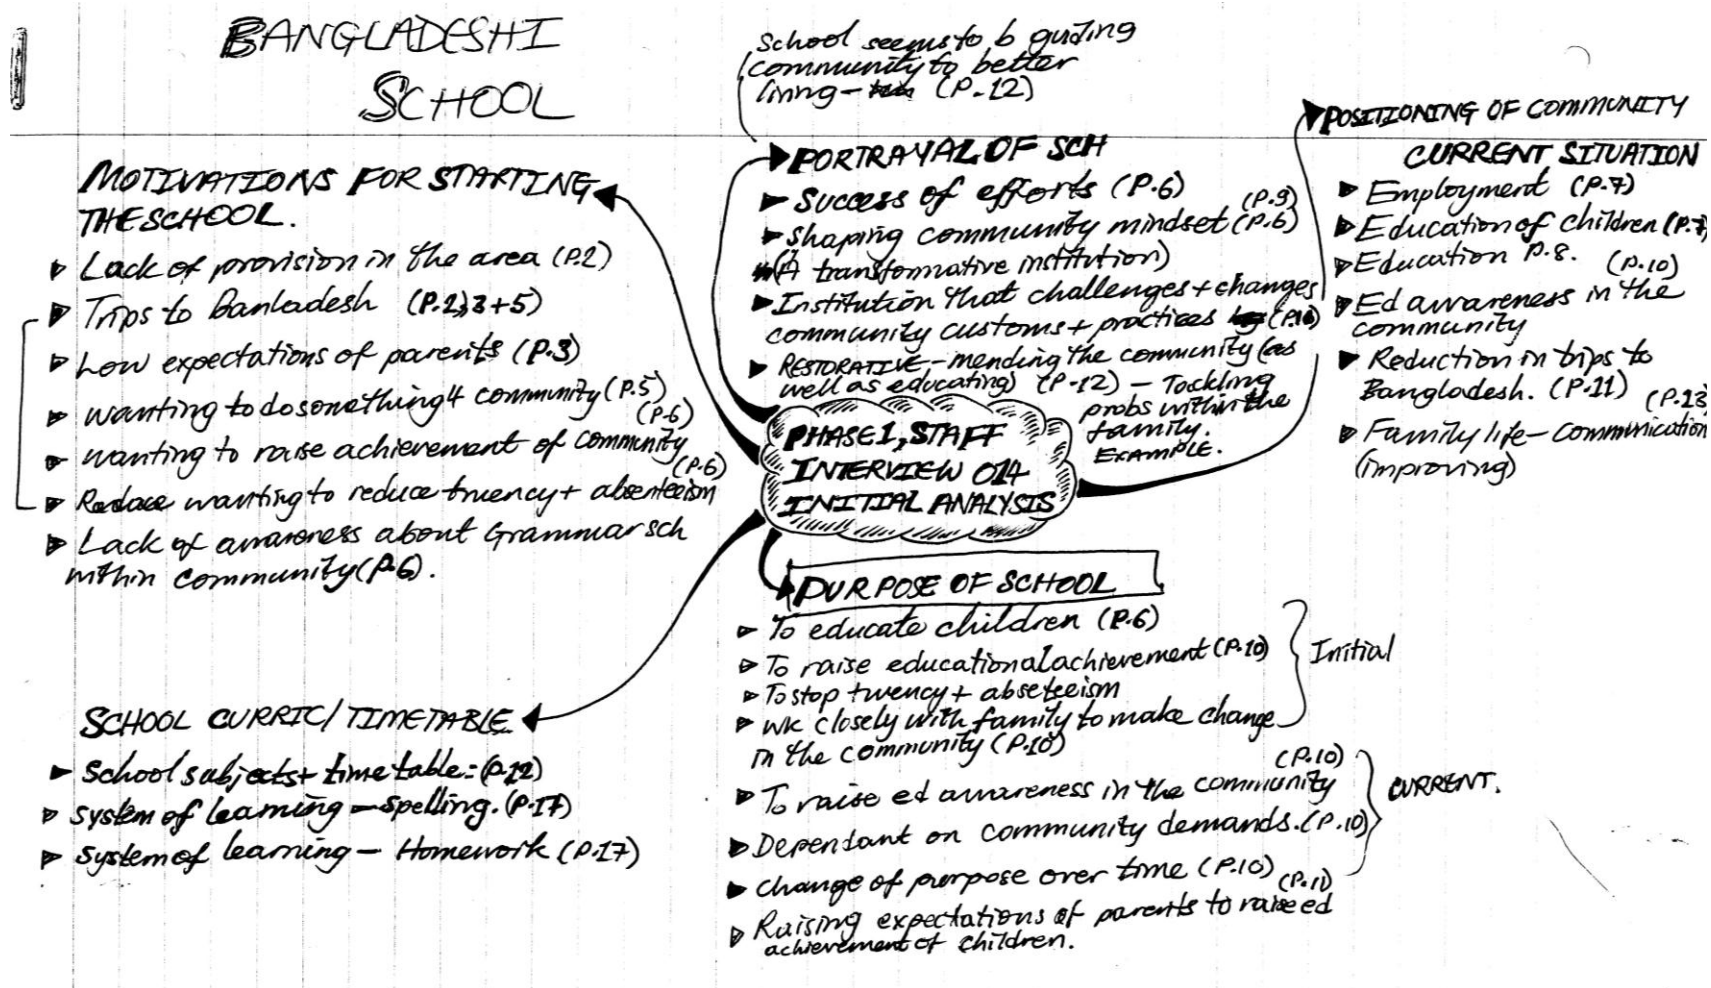 BANGLADESHI
SCHOOL
School seems to b guiding
community to better
living - (P.12)
MOTIVATIONS FOR STARTING
THE SCHOOL.
Lack of provision in the area (P.2)
Trips to Banladesh (P.2,3+5)
Low expectations of parents (P.3)
wanting to do something 4 community (P.5)
(P.6)
wanting to raise achievement of community
(P.6)
wanting to reduce truency + absenteeism
Lack of awareness about Grammar sch
within community (P.6).
SCHOOL CURRIC/TIMETABLE
School subjects + timetable: (P.12)
System of learning - spelling. (P.17)
System of learning - Homework (P.17)
PORTRAYAL OF SCH
Success of efforts (P.6)
(P.9)
Shaping community mindset (P.6)
(A transformative institution)
Institution that challenges + changes
community customs + practices
RESTORATIVE - mending the community (as
well as educating) (P.12) - Tackling
probs within the
family.
EXAMPLE.
PHASE 1, STAFF
INTERVIEW 014
INITIAL ANALYSIS
PURPOSE OF SCHOOL
To educate children (P.6)
To raise educational achievement (P.10)
To stop truency + abseteeism
Wk closely with family to make change
in the community (P.10)
Initial
(P.10)
To raise ed awareness in the community
Dependant on community demands. (P.10)
Change of purpose over time (P.10) (P.11)
Raising expectations of parents to raise ed
achievement of children.
CURRENT.
POSITIONING OF COMMUNITY
CURRENT SITUATION
Employment (P.7)
Education of children (P.7)
Education P.8.
(P.10)
Ed awareness in the
community
Reduction in trips to
Bangladesh. (P.11)
(P.13)
Family life - Communication
(improving)